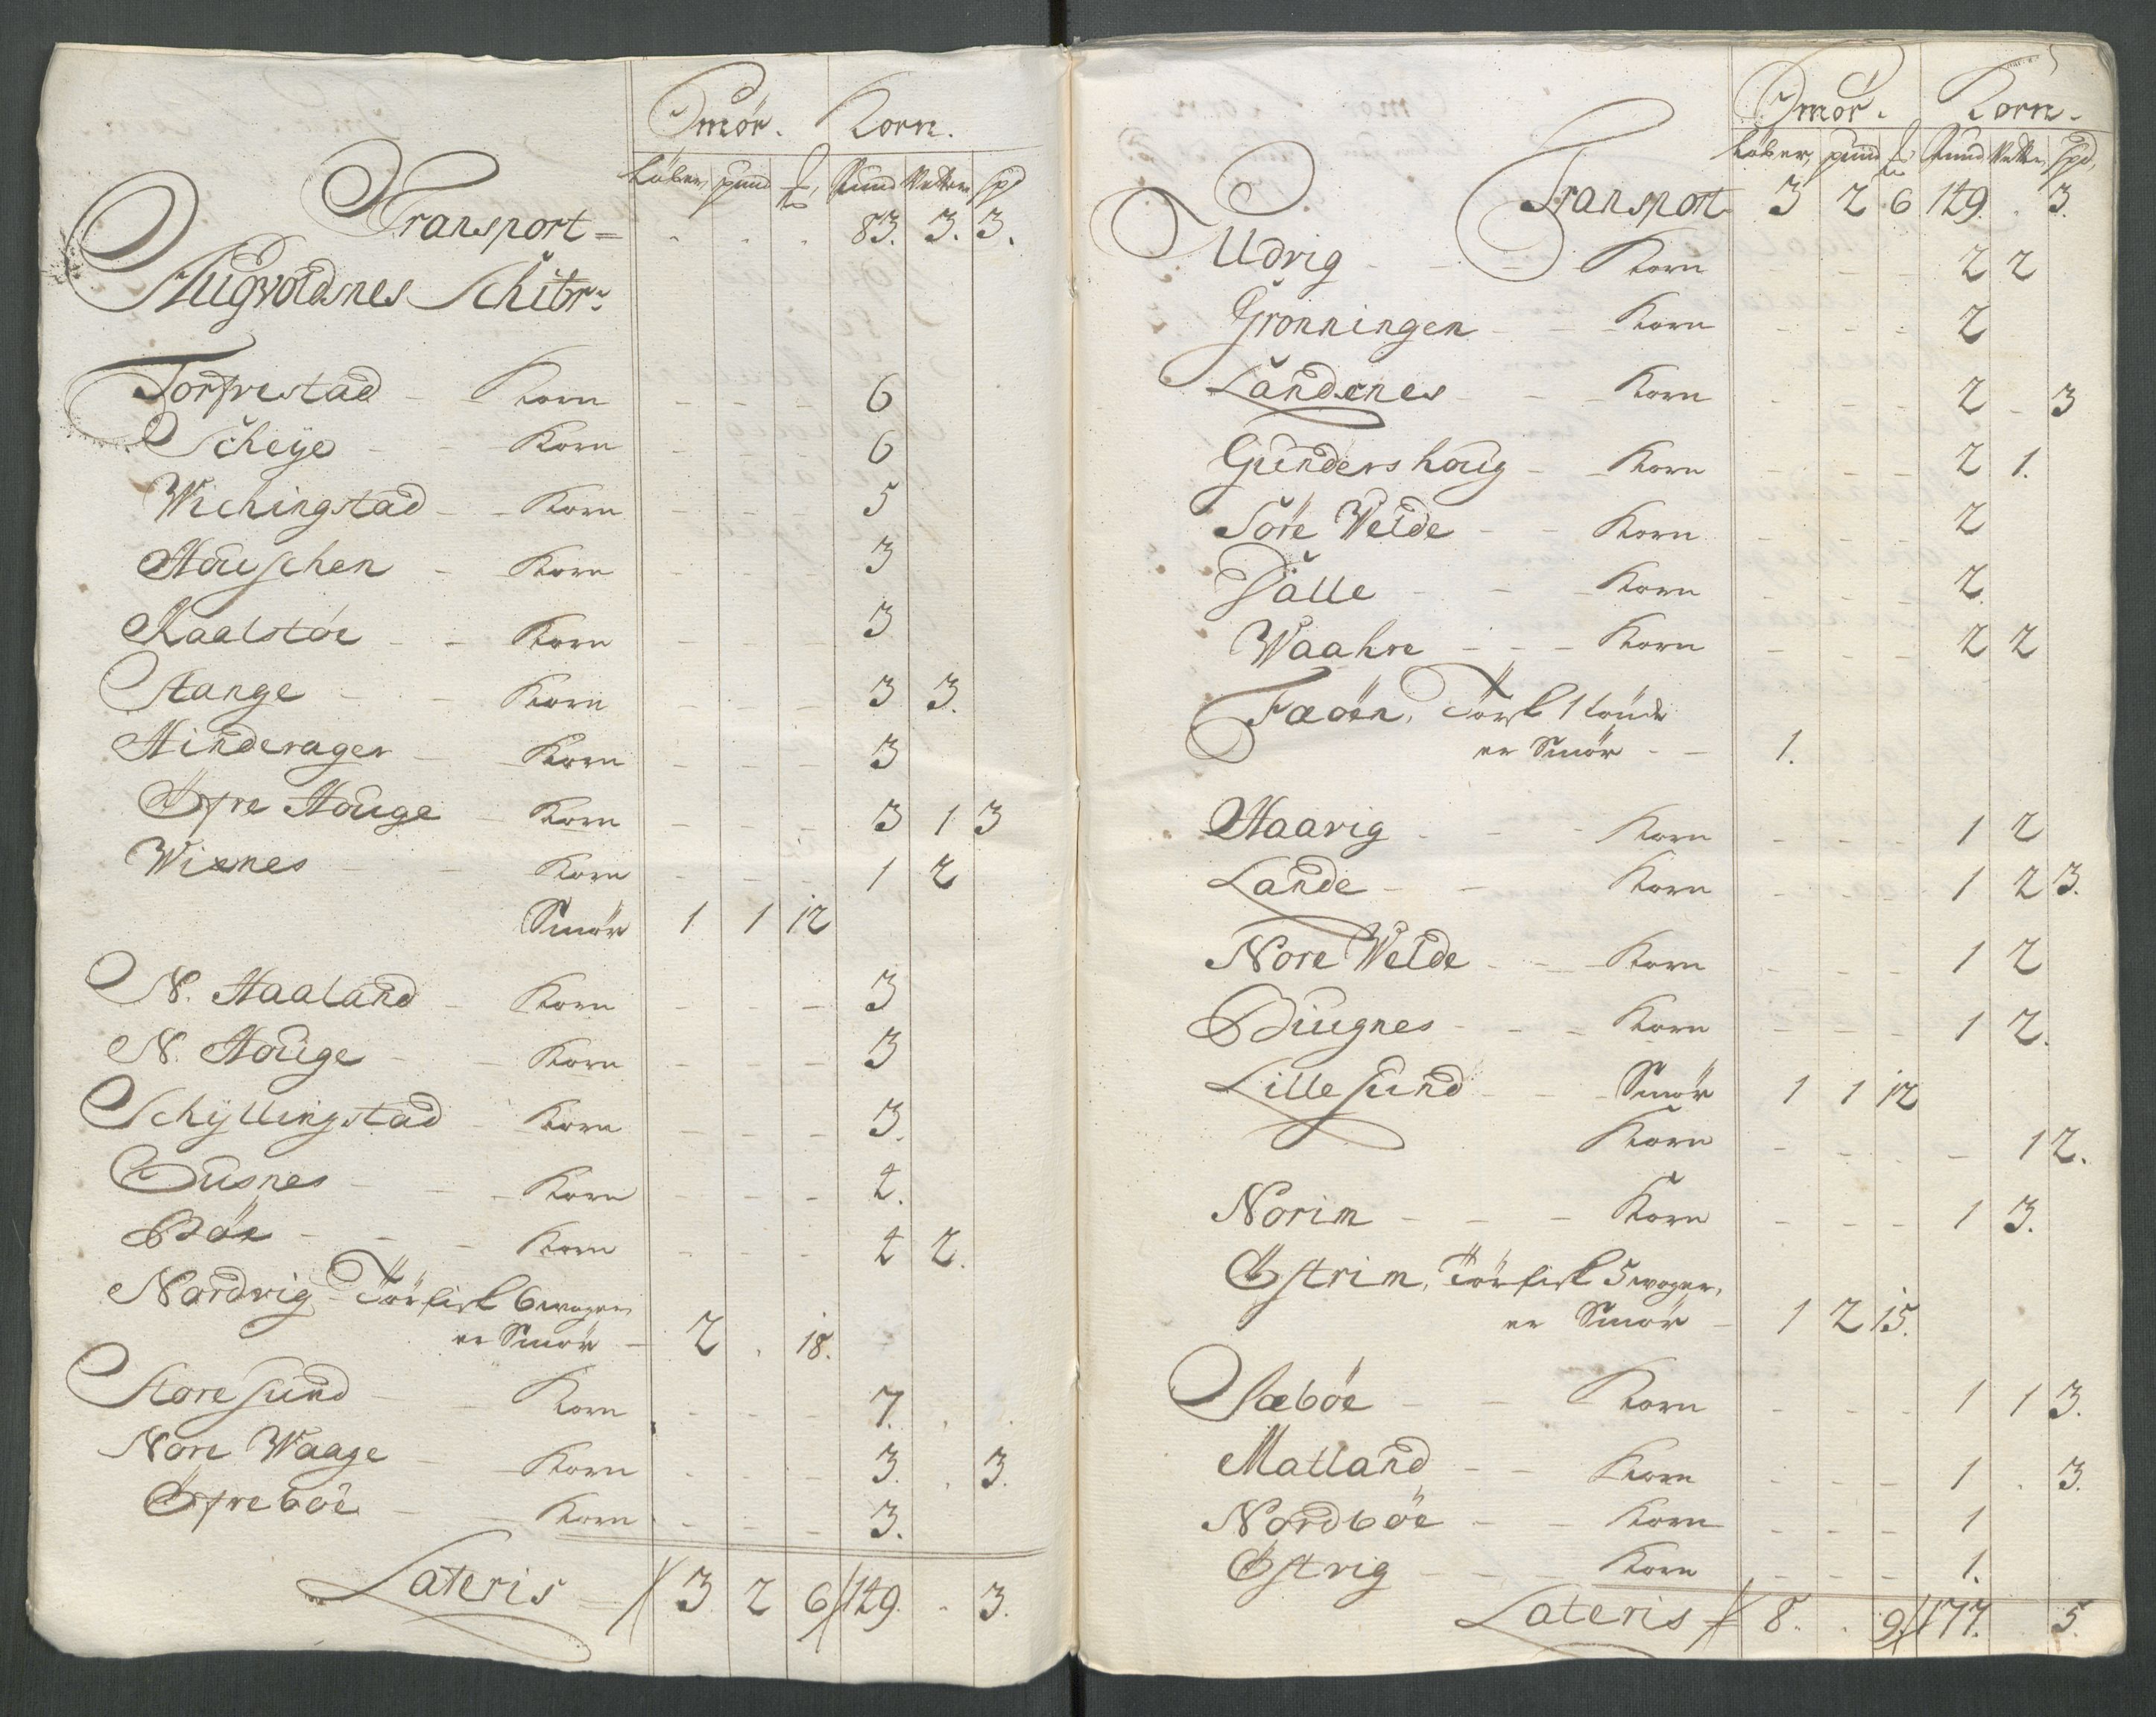 Smör. Korn.
Löber, pund ℔, Pund Vetter Spd
Transport = . . . 83. 3. 3.
Augvoldsnes Schibr:
Torfvestad - Korn - - - 6
Scheye - - Korn - - - 6
Wichingstad - - Korn - - - 5
Houschen - Korn - - - 3
Kaalstöe - - Korn - - - 3
Stange - - Korn - - - 3 3.
Hinderager - Korn - - - 3
Öfre Houge - Korn - - - 3 1 3
Wixnes - - Korn - - - 1 2
Smör 1 1 12
N. Haaland - Korn - - - 3
N. Houge - - Korn - - - 3
Schyllingstad - Korn - - - 3.
Gusnes - - - Korn - - - 4.
Böe - - - Korn - - - 4 2.
Nordvig Törfisk 6 woger
er Smör - 2 . 18.
Store Sund - - Korn - - - 7. . .
Nore Waage - - Korn - - - 3. . 3.
Öfreböe - - Korn - - - 3.
Lateris = 3 2 6 149. . 3.
Smör. Korn.
Löber, pund ℔ Pund Vetter, Spd,
Transport 3 2 6 149. . 3.
Udvig - - - Korn - - - 2 2
Grönningen - - Korn - - - 2
Landsnes - - - Korn - - - 2 - 3
Gundershoug - - Korn - - - 2 1.
Söre Velde - - Korn - - - 2
Dalle - - Korn - - - 2.
Waahre - - - Korn - - - 2 2
Fæöen, Törsk 1 tönde
er Smör - - 1.
Haavig - - - Korn - - - 1 2
Lande - - Korn - - - 1 2 3.
Nore Velde - - Korn - - - 1 2
Biugnes - - - Korn - - - 1 2.
Lille Sund - - Smör 1 1 12
Korn - - - - 1 2.
Norim - - - Korn - - - 1 3.
Östrim, Törfisk 5 woger,
er Smör - 1 2 15.
Sæböe - - Korn - - - 1 1 3.
Matland - - Korn - - - 1 . 3.
Nordböe - - Korn - - - 1
Östvig - - - Korn - - - 1.
Lateris 8. . 9 177. 5.